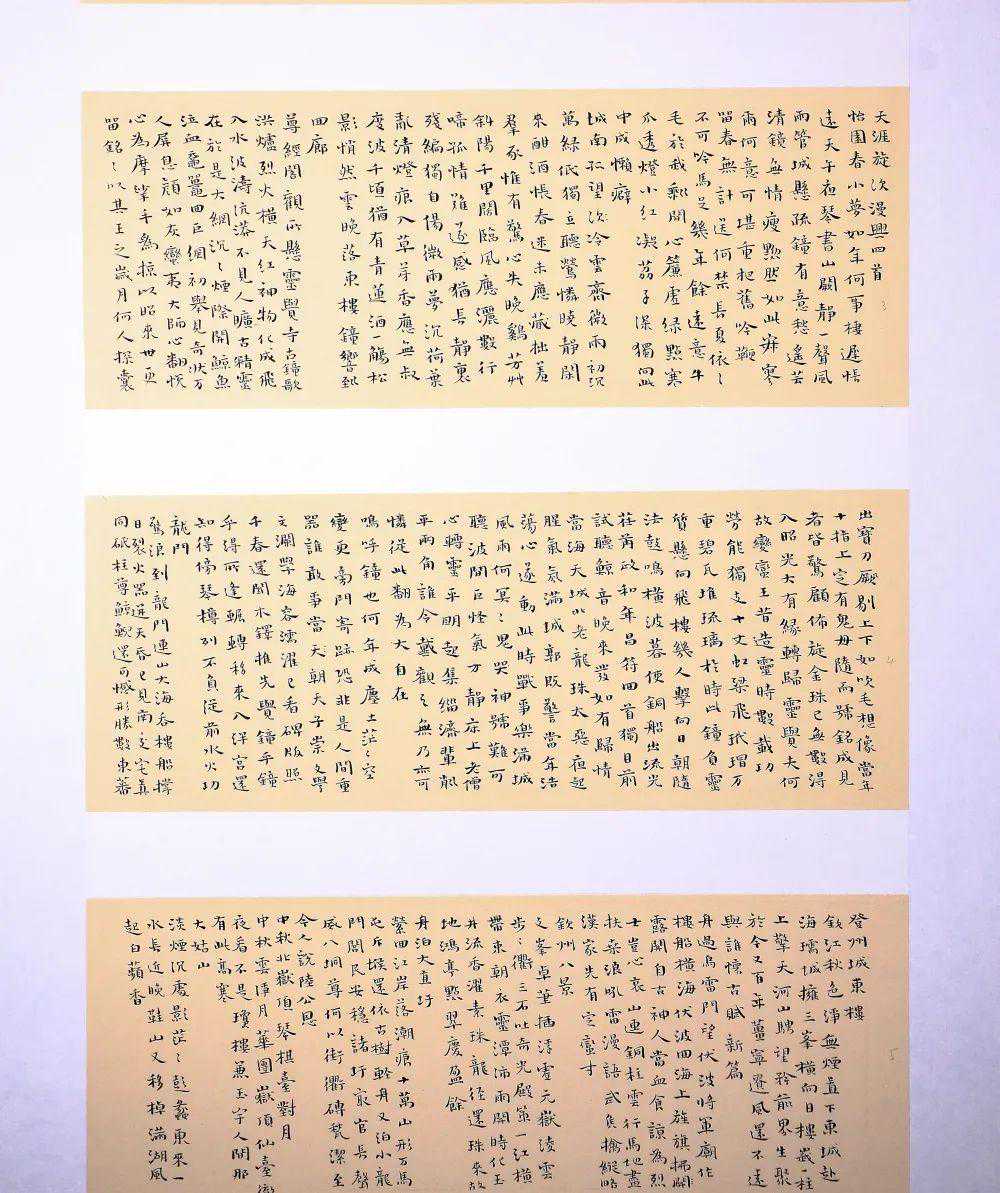 天涯旋次漫興四首
怡園春小夢如年何事棲遲悵
遠天午夜琴書山閣靜一聲風
雨管城懸疏鐘有意愁遙芸
清鏡無情瘦黯然如此癖寒
兩何意可堪重把舊吟鞭
留春無計送何禁長夏依〻
不可吟馬足幾年餘遠意牛
毛於我剩閒心簾虛綠點寒
爪透燈小紅凝荔子深獨向
中成懶癖
城南孤望次冷雲齋微雨初沉
萬綠低獨立聽鶯憐曉靜閒
來酣酒悵春迷未應藏拙羞
羣豕惟有驚心失晚鷄芳艸
斜陽千里闊臨風應灑數行
啼孤情雖遂感猶長靜裏
殘編獨自傷微雨夢沉荷葉
清燈痕入草芽香應無叔
度波千頃猶有青蓮酒一觴松
影悄然雲晚落東樓鐘響到
四廊
尊經閣觀所懸靈覺寺古鐘歌
洪爐烈火橫天紅神物化成飛
入水波濤沆漭不見人曠古精靈
在於是大網沉〻煙際開鯨魚
泣血黿鼉四巨網初舉見奇狀万
人屏息顏如灰蠻夷大師心翻悅
心為摩挲手為掠以昭來世亟
留銘〻以其王之歲月何人探囊
出寶刀廠剔上下如吹毛想像當年
十指上定有鬼母隨而號銘成見
者皆驚顧佈旋金珠已無數得
入昭光大有緣轉歸靈覺夫何
故變蠻王昔造靈時數載功
勞能獨支十丈虹梁飛玳瑁万
重碧瓦堆琉璃於時此鐘負靈
質懸向飛樓幾人擊向日朝隨
法鼓鳴橫波暮使銅船出流光
荏苒政和年呂符四首獨日前
試聽鯨音晚來發如有歸情
當海天城小老龍珠太惡夜起
腥氣氣滿城郭既警當年浩
蕩心遂動此時戰爭樂滿城
風雨何冥〻鬼哭神號難可
聽波間巨怪氣方靜床上老僧
心轉靈平明起集緇濟輩削
平兩角誰今戴觀之無乃亦可
憐從此翻為大自在
鳴呼鐘也何年成塵土茫〻空
變更高門寄跡恐非是人間重
器誰敢爭當天朝天子崇文學
文瀾學海容濡濯已看碑版照
千春還聞木鐸推先覺鐘乎鐘
乎得所逢輾轉移來入泮宮還
知得傍琴樽列不負從前水火功
龍門
驚浪到龍門連山大海吞樓船撐
日裂火器逆天昏已見南交宅真
同砥柱尊鯨鯢還可憾形勝數東藩
登州城東樓
欽江秋色淨無煙直下東城赴
海壖城擁三峯橫向日樓歲一柱
上擎天河山騁望矜前界生聚
於今又百年薑寧遷風還不遠
與誰懷古賦新篇
舟過烏雷門望伏波將軍廟作
樓船橫海伏波四海上旌旗拂開
露關自古神人當血食諒為烈
士豈心哀山連銅柱雲行馬地盡
扶桑浪吼雷漫語武侯擒縱略
漢家先有定蠻才
欽州八景
之峯卓筆插浮虛元嶽淩雲
步〻衢三石吐奇光殿策一紅橫
帶束朝衣靈潭沛雨開時化玉
井流香濯素珠龍徑還珠來故
地鴻亭點翠慶盈餘
丹泊大直圩
縈四江岸落潮痕十萬山形万馬
屯斥堠還依古樹軽舟又泊小龍
門閭民安穩諸圩最官長聲
威八垌尊何以街衢磚甃潔至
今人說陸公恩
中秋北嶽頂琴棋臺對月
中秋雲淨月華圓嶽頂仙臺
夜看不是瓊樓兼玉宇人間那
有此高寒
大姑山
淡煙沉處影茫〻彭蠡東來一
水長近晚鞋山又移掉滿湖風
起白蘋香